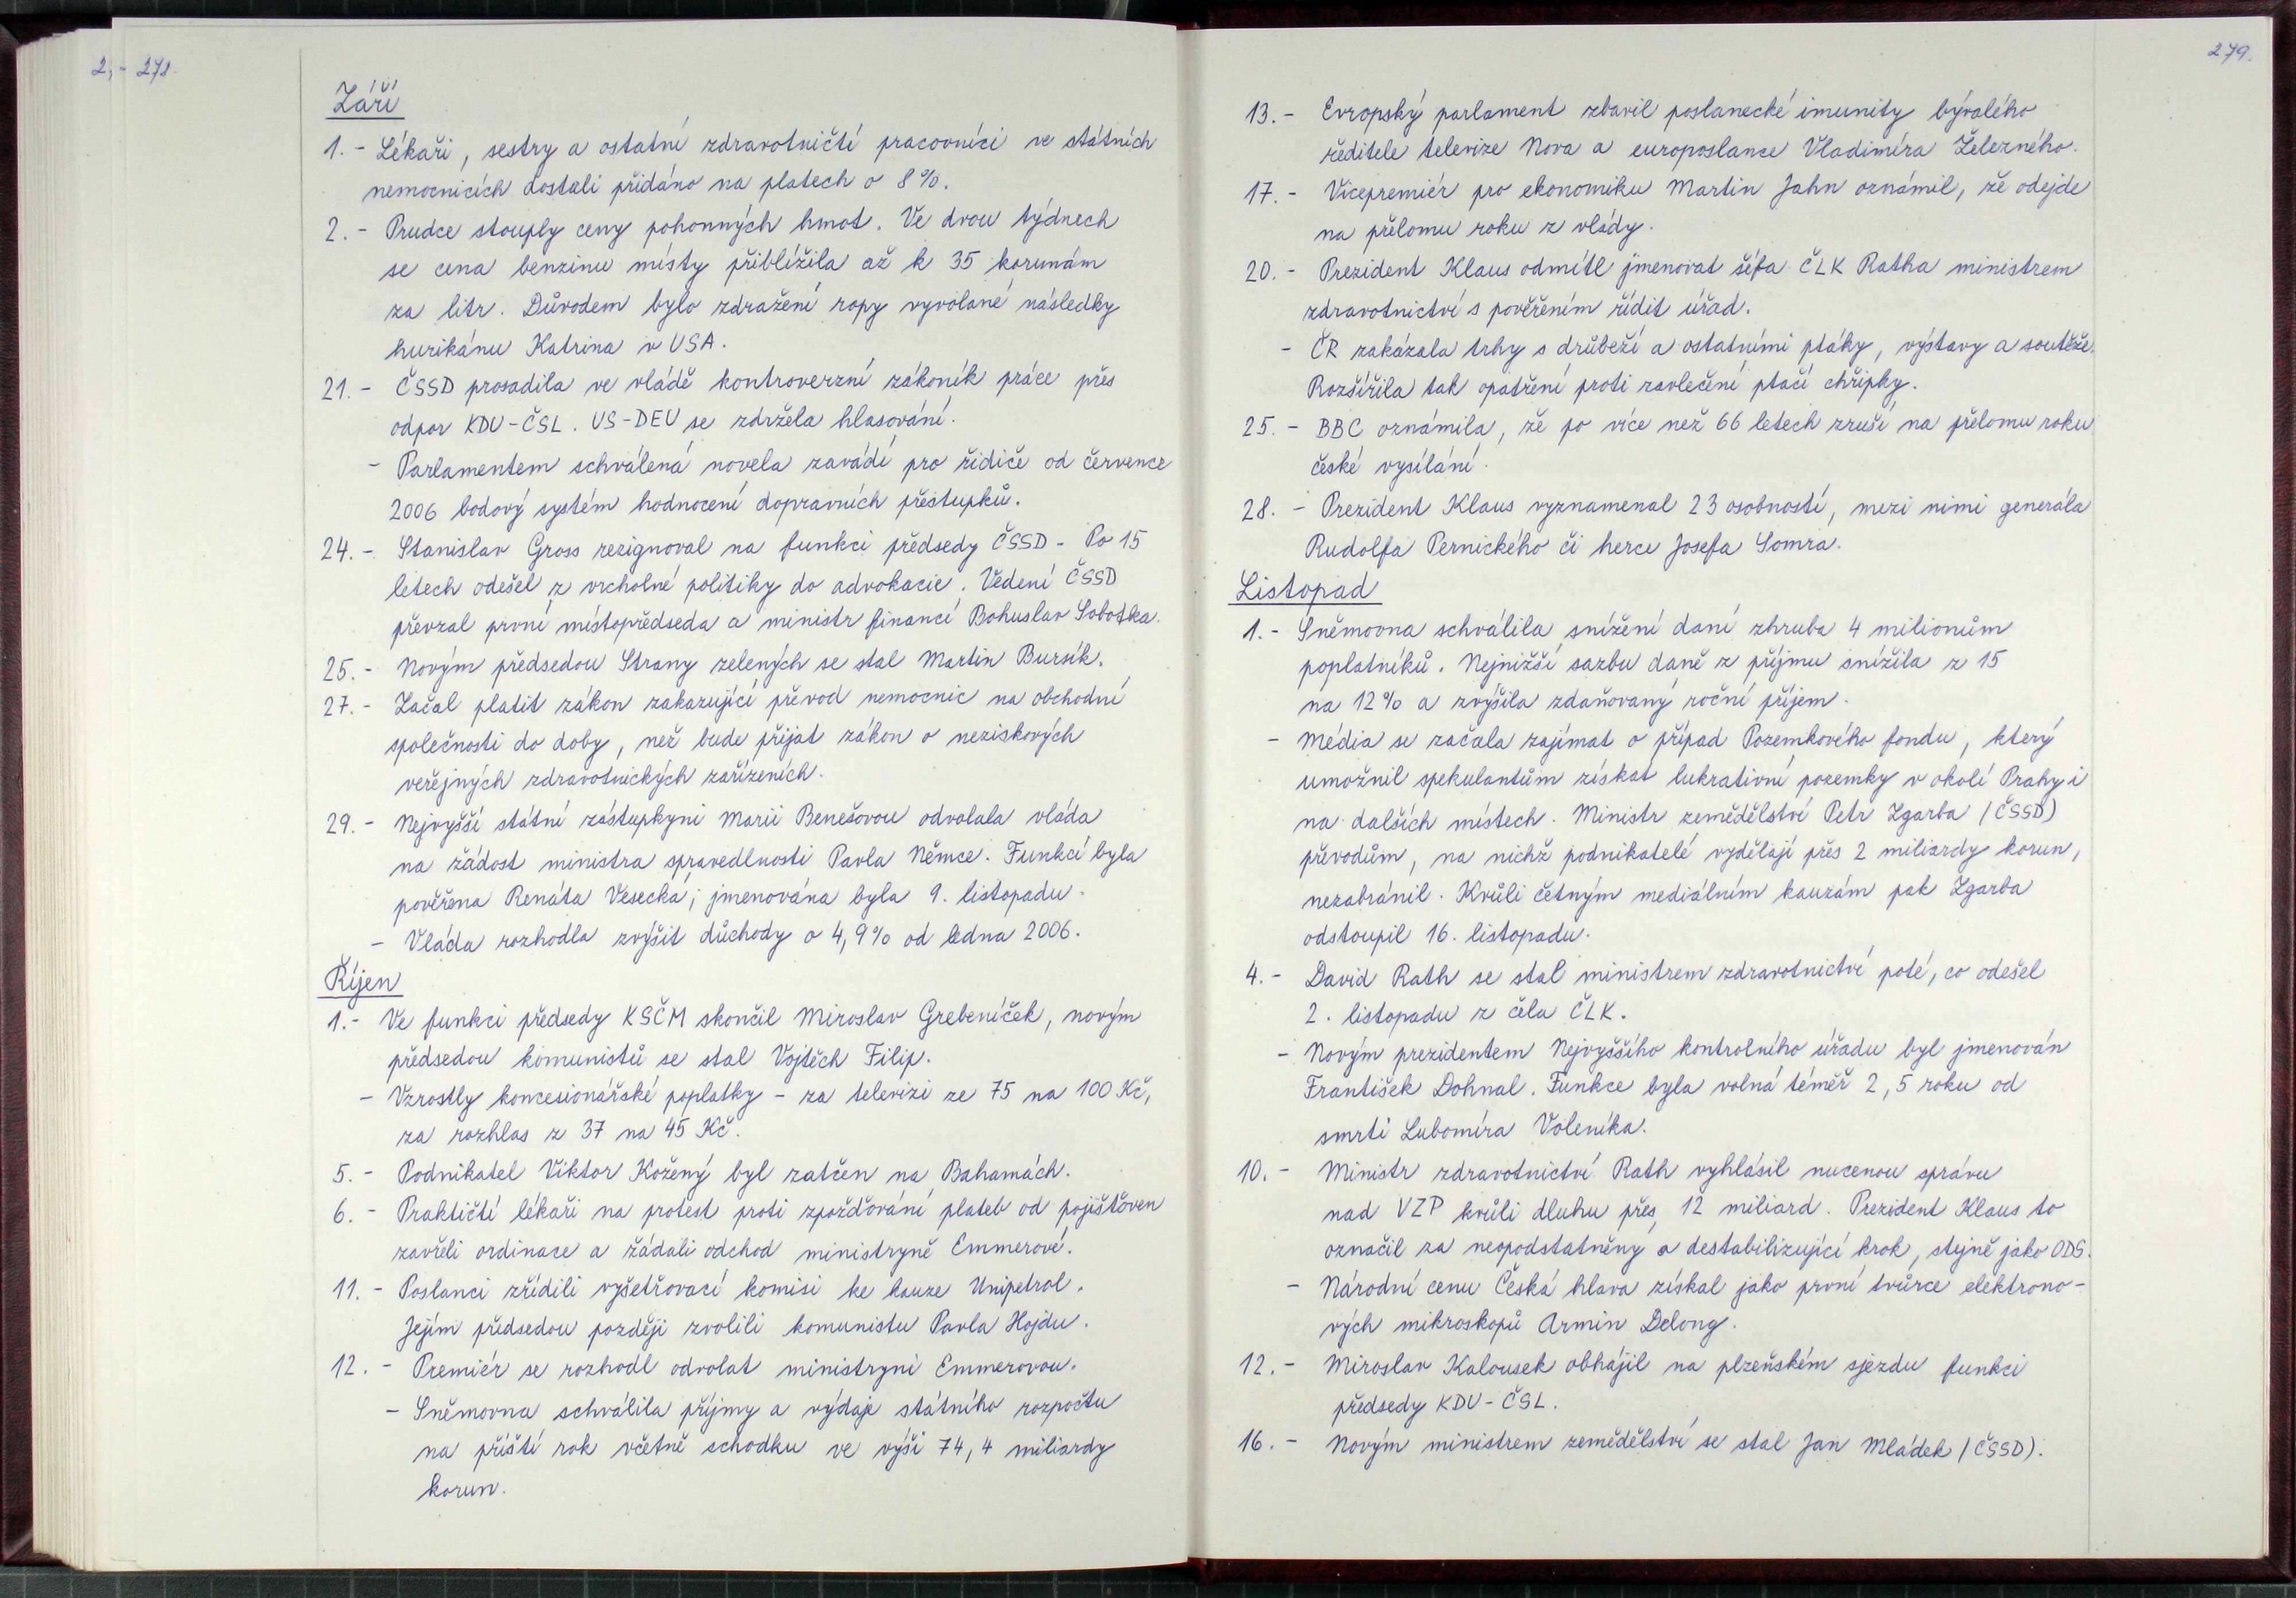 2,- 278.
Září
1. - Lékaři, sestry a ostatní zdravotničtí pracovníci ve státních
nemocnicích dostali přidáno na platech o 8 %.
2. - Prudce stouply ceny pohonných hmot. Ve dvou týdnech
se cena benzinu místy přiblížila až k 35 korunám
za litr. Důvodem bylo zdražení ropy vyvolané následky
hurikánu Katrina v USA.
21. - ČSSD prosadila ve vládě kontroverzní zákoník práce přes
odpor KDU-ČSL. US-DEU se zdržela hlasování.
- Parlamentem schválená novela zavádí pro řidiče od července
2006 bodový systém hodnocení dopravních přestupků.
24. - Stanislav Gross rezignoval na funkci předsedy ČSSD - Po 15
letech odešel z vrcholné politiky do advokacie. Vedení ČSSD
převzal první místopředseda a ministr financí Bohuslav Sobotka.
25. - Novým předsedou Strany zelených se stal Martin Bursík.
27. - Začal platit zákon zakazující převod nemocnic na obchodní
společnosti do doby, než bude přijat zákon o neziskových
veřejných zdravotnických zařízeních.
29. - Nejvyšší státní zástupkyni Marii Benešovou odvolala vláda
na žádost ministra spravedlnosti Pavla Němce. Funkcí byla
pověřena Renáta Vesecká; jmenována byla 9. listopadu.
- Vláda rozhodla zvýšit důchody o 4,9 % od ledna 2006.
Říjen
1. - Ve funkci předsedy KSČM skončil Miroslav Grebeníček, novým
předsedou komunistů se stal Vojtěch Filip.
- Vzrostly koncesionářské poplatky - za televizi ze 75 na 100 Kč,
za rozhlas z 37 na 45 Kč.
5. - Podnikatel Viktor Kožený byl zatčen na Bahamách.
6. - Praktičtí lékaři na protest proti zpožďování plateb od pojišťoven
zavřeli ordinace a žádali odchod ministryně Emmerové.
11. - Poslanci zřídili vyšetřovací komisi ke kauze Unipetrol.
Jejím předsedou později zvolili komunistu Pavla Hojdu.
12. - Premiér se rozhodl odvolat ministryni Emmerovou.
- Sněmovna schválila příjmy a výdaje státního rozpočtu
na příští rok včetně schodku ve výši 74,4 miliardy
korun.
279.
13. - Evropský parlament zbavil poslanecké imunity bývalého
ředitele televize Nova a europoslance Vladimíra Železného.
17. - Vicepremiér pro ekonomiku Martin Jahn oznámil, že odejde
na přelomu roku z vlády.
20. - Prezident Klaus odmítl jmenovat šéfa ČLK Ratha ministrem
zdravotnictví s pověřením řídit úřad.
- ČR zakázala trhy s drůbeží a ostatními ptáky, výstavy a soutěže.
Rozšířila tak opatření proti zavlečení ptačí chřipky.
25. - BBC oznámila, že po více než 66 letech zruší na přelomu roku
české vysílání.
28. - Prezident Klaus vyznamenal 23 osobností, mezi nimi generála
Rudolfa Pernického či herce Josefa Somra.
Listopad
1. - Sněmovna schválila snížení daní zhruba 4 milionům
poplatníků. Nejnižší sazbu daně z příjmu snížila z 15
na 12 % a zvýšila zdaňovaný roční příjem.
- Média se začala zajímat o případ Pozemkového fondu, který
umožnil spekulantům získat lukrativní pozemky v okolí Prahy i
na dalších místech. Ministr zemědělství Petr Zgarba (ČSSD)
převodům, na nichž podnikatelé vydělají přes 2 miliardy korun,
nezabránil. Kvůli četným mediálním kauzám pak Zgarba
odstoupil 16. listopadu.
4. - David Rath se stal ministrem zdravotnictví poté, co odešel
2. listopadu z čela ČLK.
- Novým prezidentem Nejvyššího kontrolního úřadu byl jmenován
František Dohnal. Funkce byla volná téměř 2,5 roku od
smrti Lubomíra Voleníka.
10. - Ministr zdravotnictví Rath vyhlásil nucenou správu
nad VZP kvůli dluhu přes 12 miliard. Prezident Klaus to
označil za neopodstatněný a destabilizující krok, stejně jako ODS.
- Národní cenu Česká hlava získal jako první tvůrce elektrono-
vých mikroskopů Armin Delong.
12. - Miroslav Kalousek obhájil na plzeňském sjezdu funkci
předsedy KDU-ČSL.
16. - Novým ministrem zemědělství se stal Jan Mládek (ČSSD).